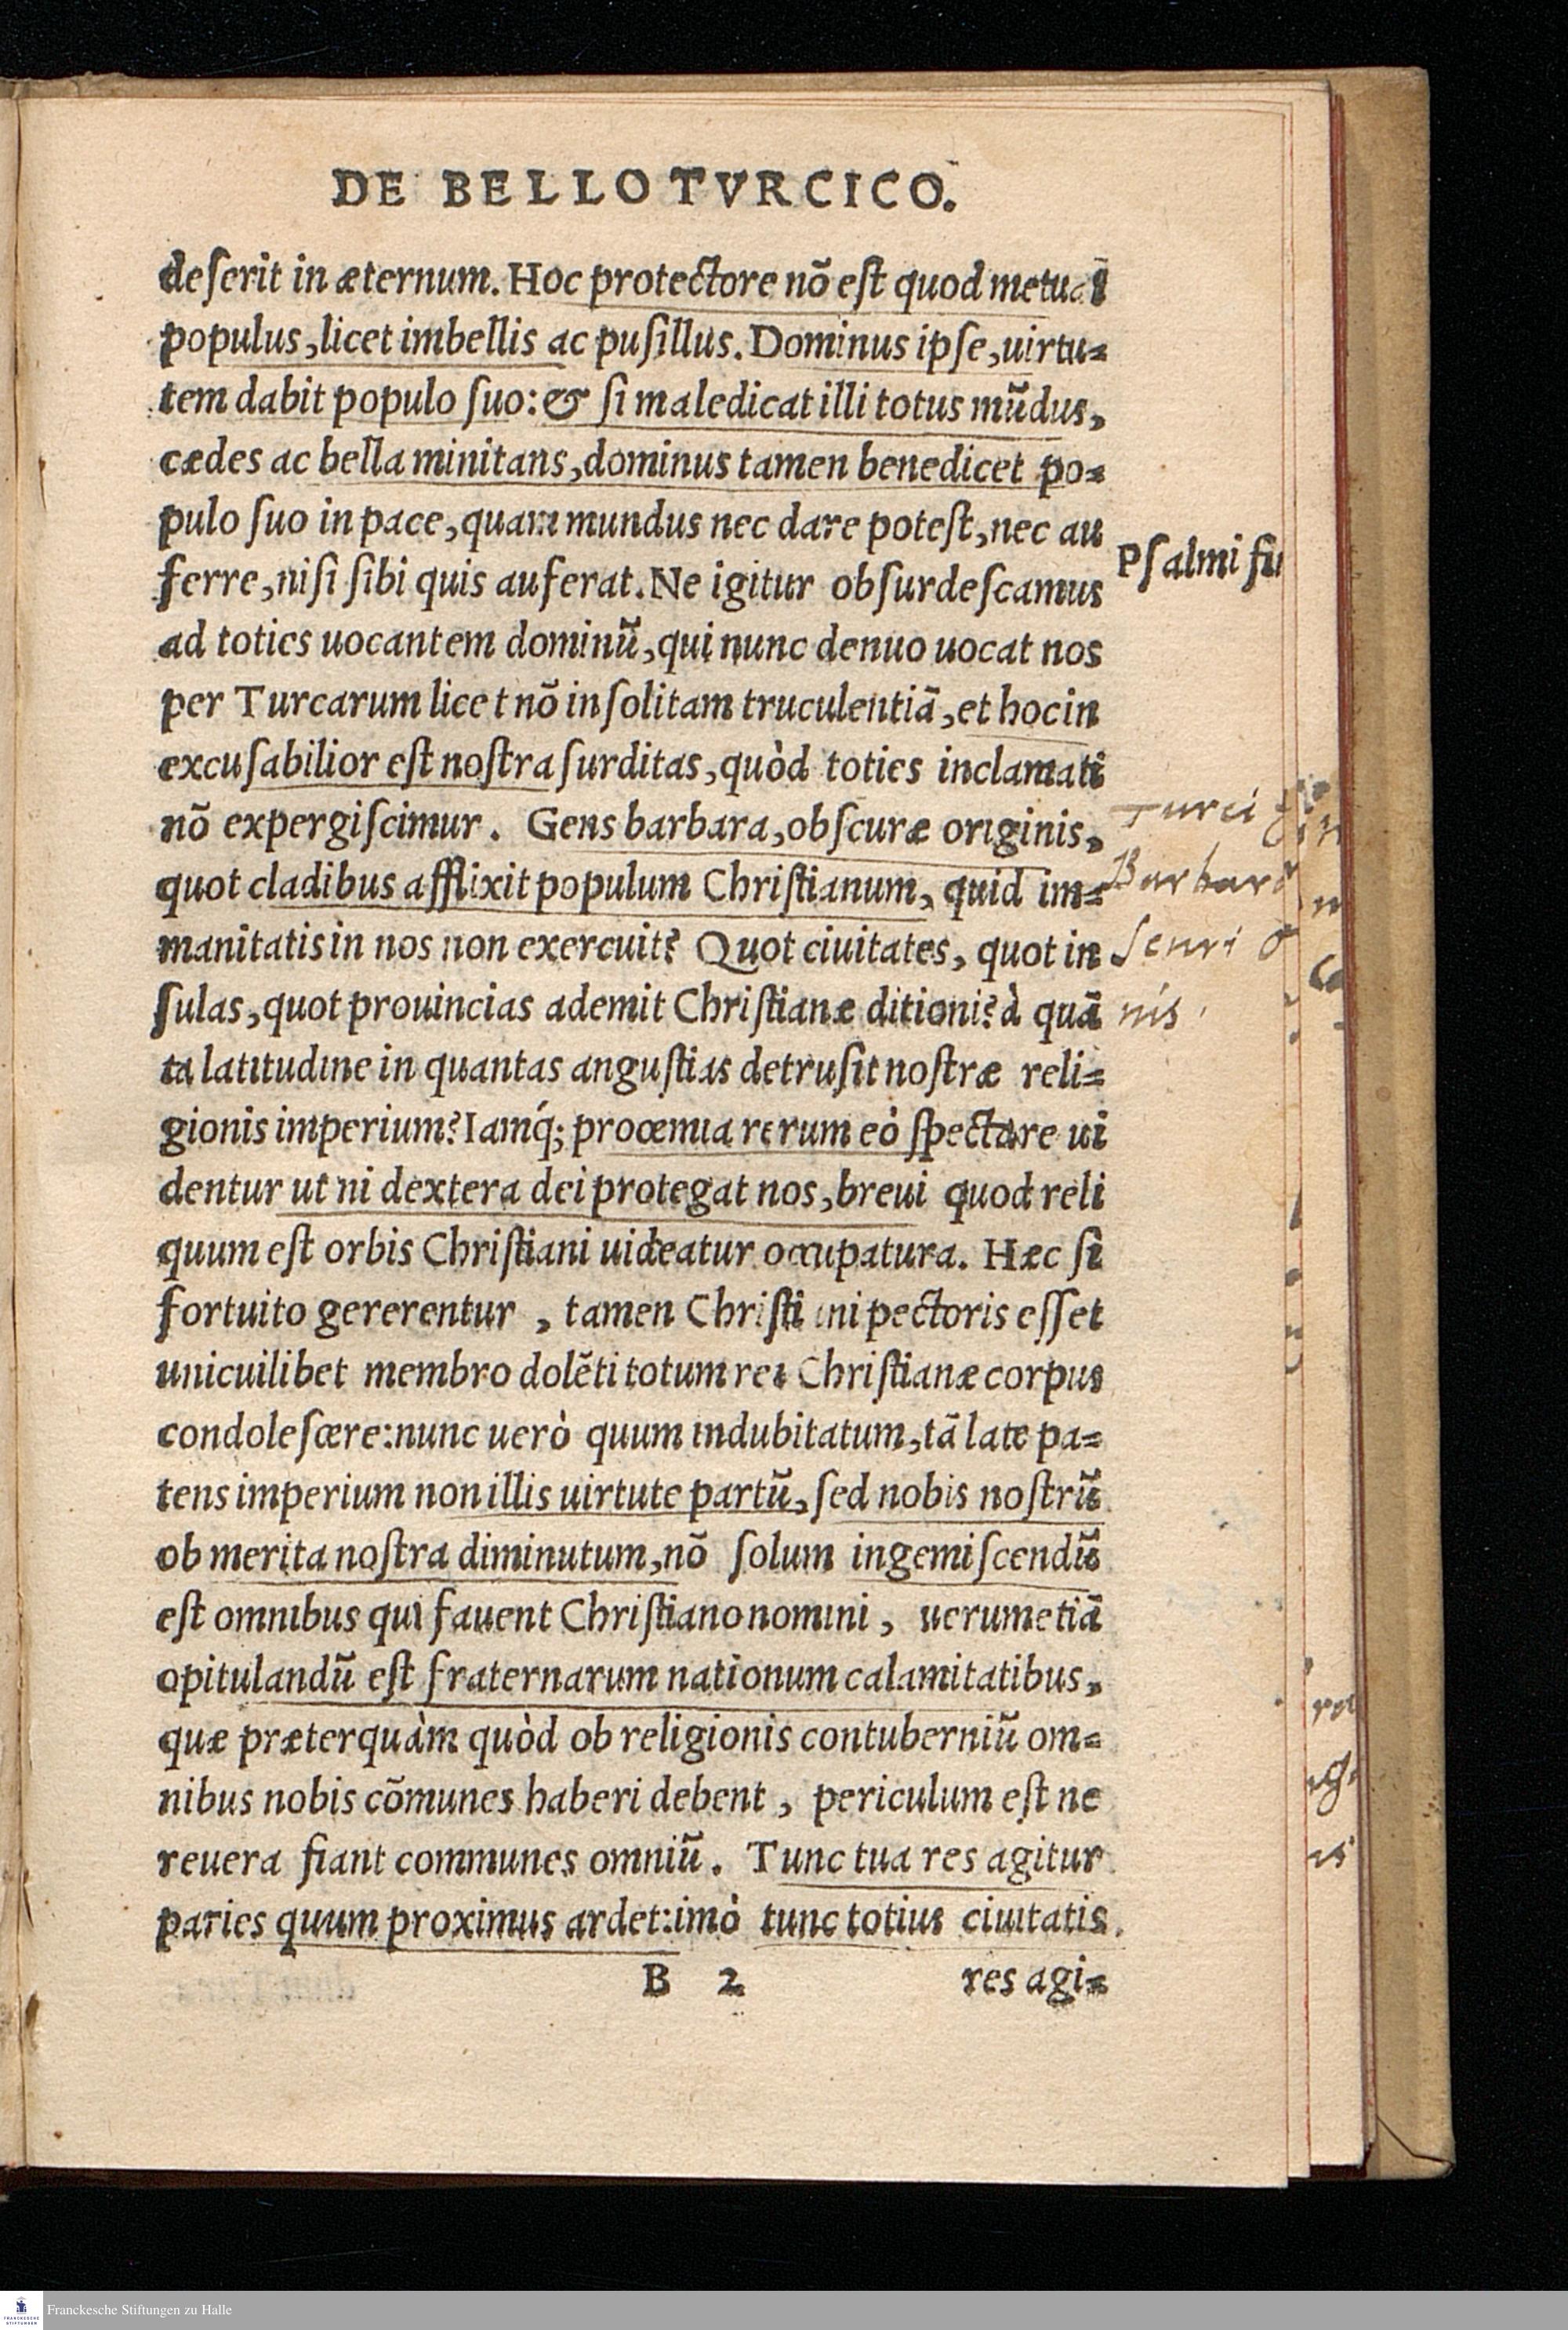 DE BELLO TVRCICO.
deſerit in æternum. Hoc protectore nõ eſt quod metuat
populus, licet imbellis ac puſillus. Dominus ipſe, uirtu=
tem dabit populo ſuo: & ſi maledicat illi totus mũdus,
cædes ac bella minitans, dominus tamen benedicet po=
pulo ſuo in pace, quam mundus nec dare poteſt, nec au
ferre, niſi ſibi quis auferat. Ne igitur obſurdeſcamus
Pſalmi fi
ad toties uocantem dominũ, qui nunc denuo uocat nos
per Turcarum licet nõ inſolitam truculentiã, et hoc in
excuſabilior eſt noſtra ſurditas, quòd toties inclamati
nõ expergiſcimur. Gens barbara, obſcuræ originis,
Turci
quot cladibus afflixit populum Chriſtianum, quid im=
Barbar
manitatis in nos non exercuit? Quot ciuitates, quot in
ſulas, quot prouincias ademit Chriſtianæ ditioni? à quã
nis
ta latitudine in quantas anguſtias detruſit noſtræ reli=
gionis imperium? Iamq́; proœmia rerum eò ſpectare ui
dentur ut ni dextera dei protegat nos, breui quod reli
quum eſt orbis Chriſtiani uideatur occupatura. Hæc ſi
fortuito gererentur, tamen Chriſtiani pectoris eſſet
unicuilibet membro dolẽti totum rei Chriſtianæ corpus
condoleſcere: nunc uerò quum indubitatum, tã late pa=
tens imperium non illis uirtute partũ, ſed nobis noſtrũ
ob merita noſtra diminutum, nõ ſolum ingemiſcendũ
eſt omnibus qui fauent Chriſtiano nomini, uerum etiã
opitulandũ eſt fraternarum nationum calamitatibus,
quæ præterquàm quòd ob religionis contuberniũ om=
nibus nobis cõmunes haberi debent, periculum eſt ne
reuera fiant communes omniũ. Tunc tua res agitur
paries quum proximus ardet: imò tunc totius ciuitatis
B 2 res agi=
Franckesche Stiftungen zu Halle